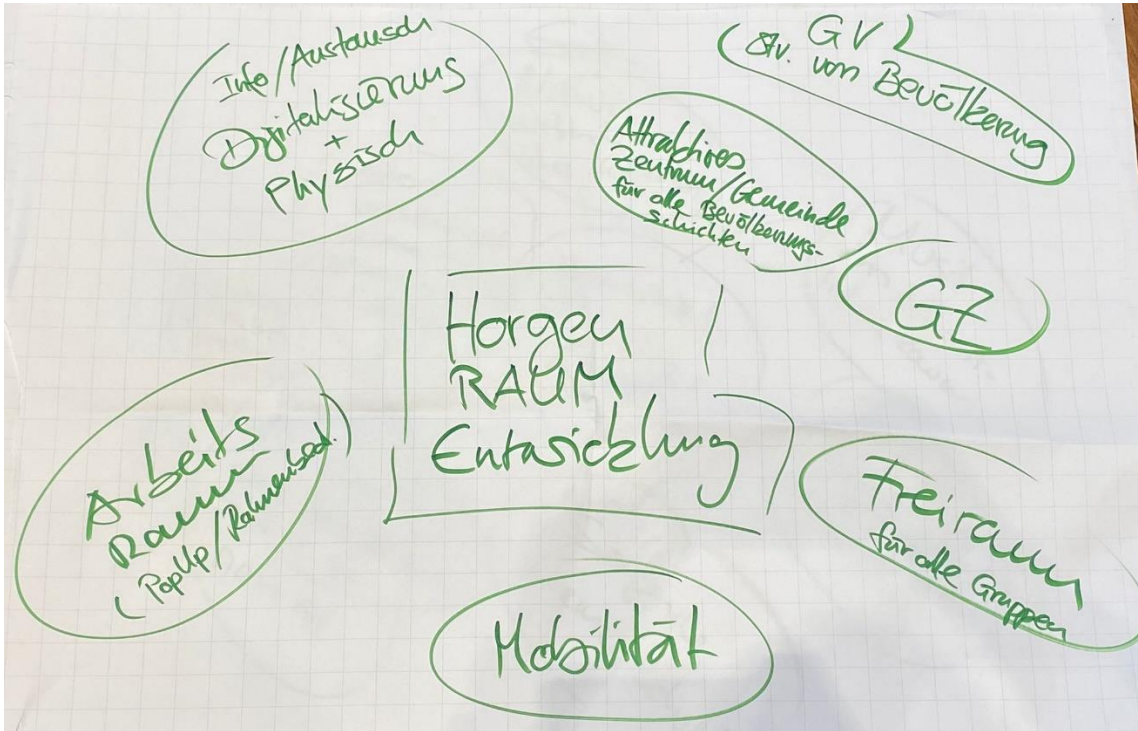 Info/Austausch
Digitalisierung
+
Physisch
GVL
Stv. von Bevölkerung
Attraktives
Zentrum/Gemeinde
für alle Bevölkerungs-
schichten
GZ
Horgen
RAUM
Entwicklung
Arbeits
Raum
(PopUp/Rahmenbed.)
Freiraum
für alle Gruppen
Mobilität